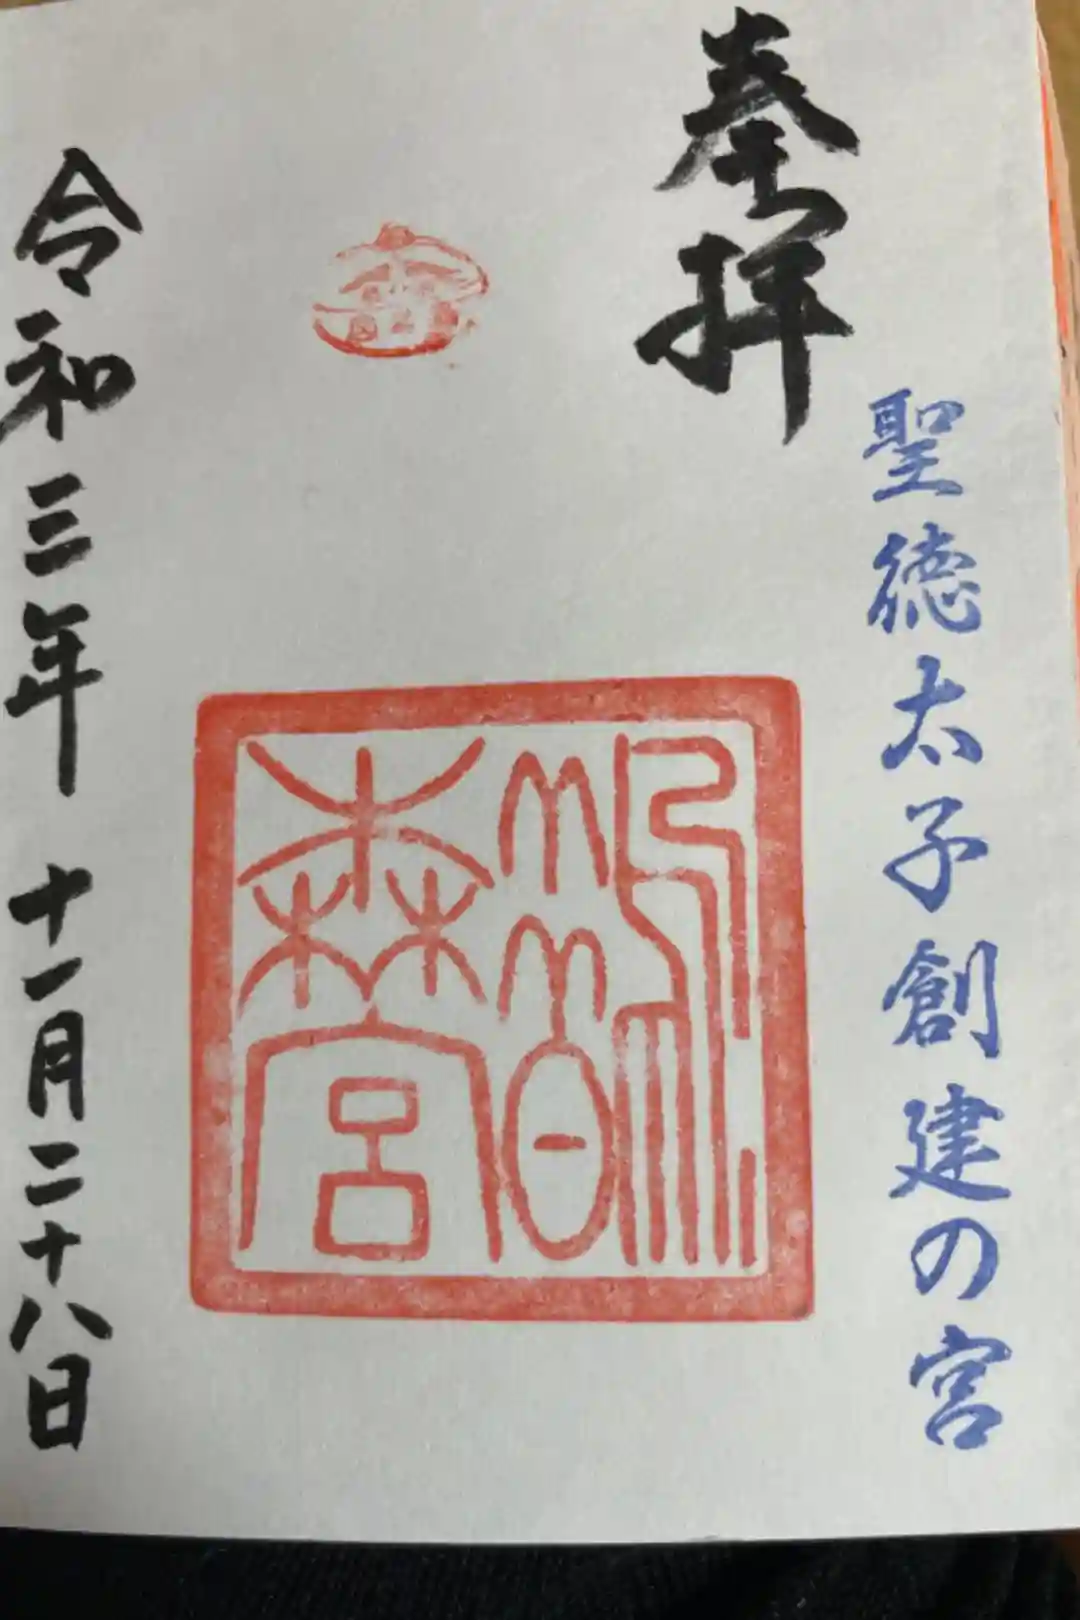 聖徳太子創建の宮
奉拝
鵲
森宮
令和三年 十一月二十八日